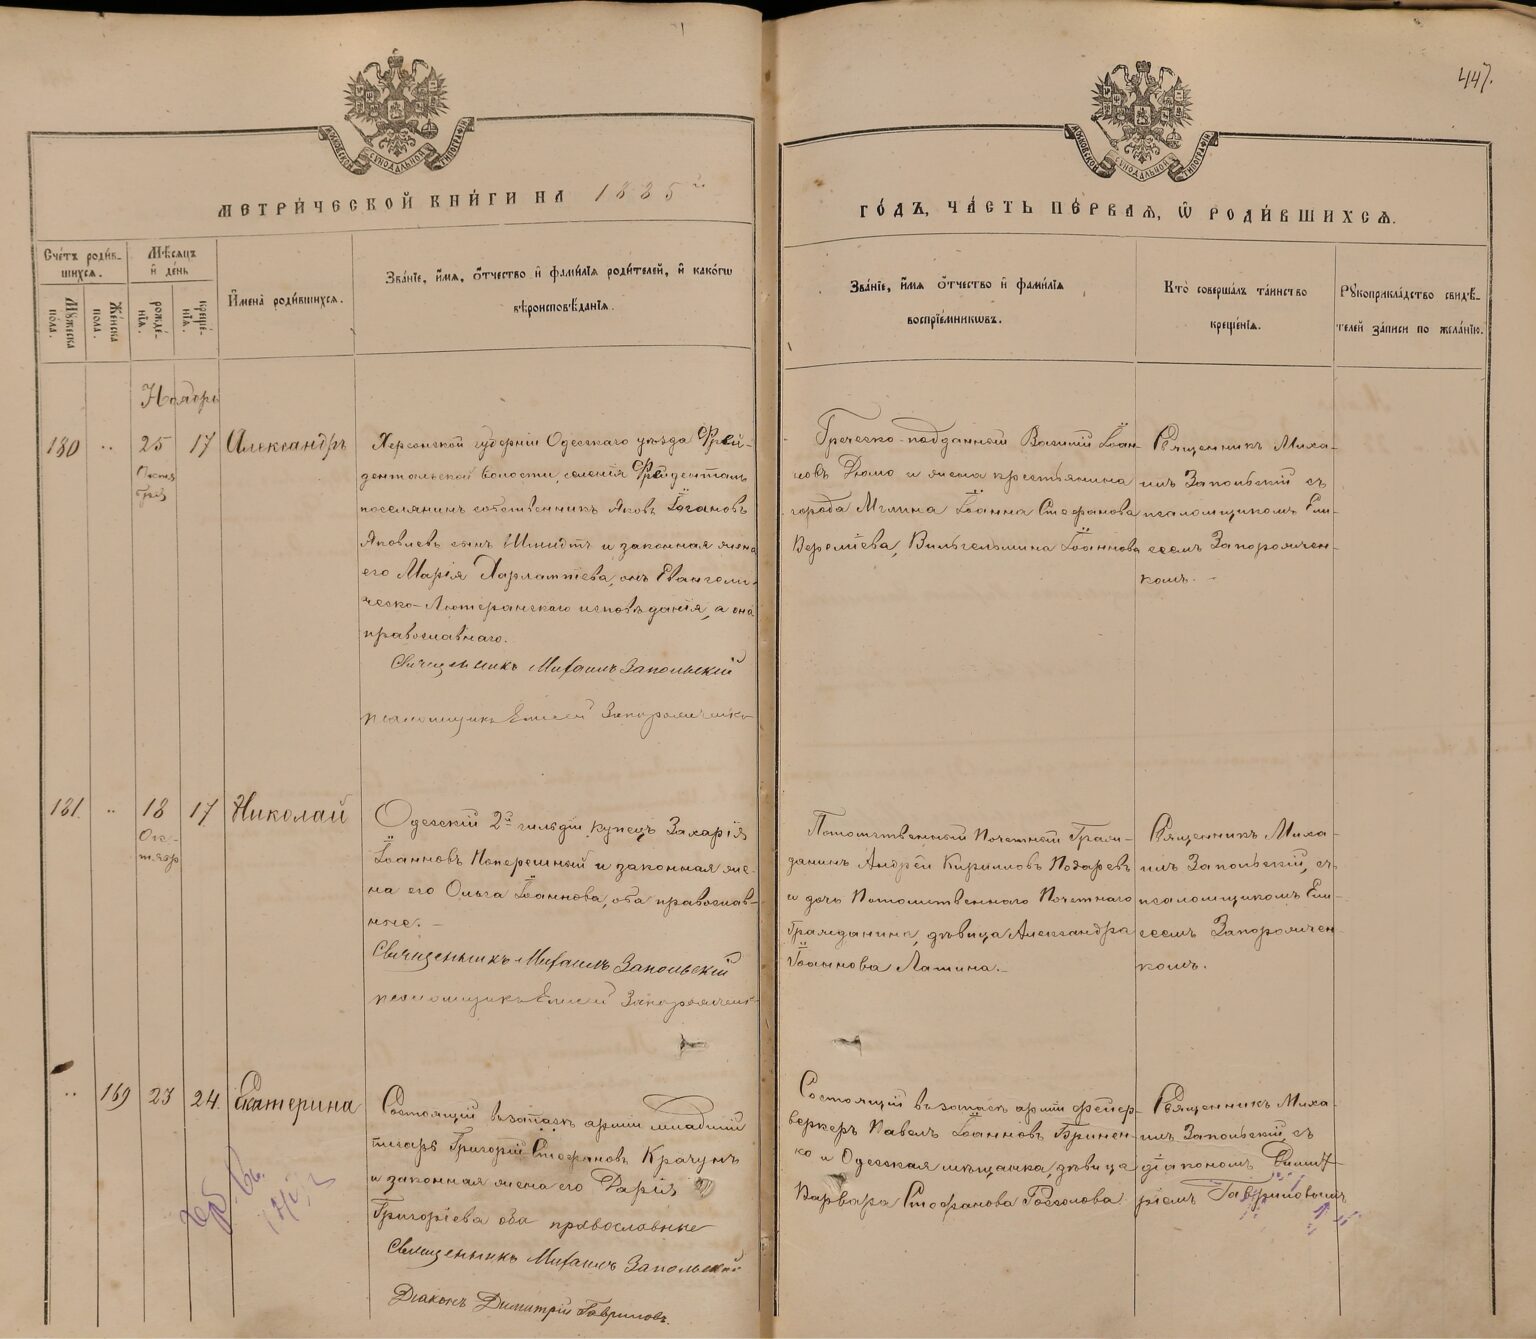 447.
МОСКОВСКОЙ СѴНОДАЛЬНОЙ ТИПОГРАФІИ
МОСКОВСКОЙ СѴНОДАЛЬНОЙ ТИПОГРАФІИ
МЕТРИ́ЧЕСКОЙ КНИ́ГИ НА 1885й
ГО́ДЪ, ЧА́СТЬ ПЕ́РВАѦ, Ѡ҆ РОДИ́ВШИХСѦ.
Сче́тъ роди́в-
шихсѧ.
Мꙋ́жеска
по́ла.
Же́нска
по́ла.
Мѣ́сѧцъ
и҆ де́нь
рожде́-
нїѧ.
креще́-
нїѧ.
И҆мена̀ роди́вшихсѧ.
Зва́нїе, и҆́мѧ, ѻ҆́тчество и҆ фами́лїѧ роди́телей, и҆ како́гѡ
вѣроисповѣ́данїѧ.
Зва́нїе, и҆́мѧ ѻ҆́тчество и҆ фами́лїѧ
воспрїе́мникѡвъ.
Кто̀ соверша́лъ та́инство
креще́нїѧ.
Рꙋкоприкла́дство свидѣ́-
телей за́писи по жела́нїю.
Ноябрь
180 „ 25 17 Александръ
Октя
бря
Херсонской губерніи Одесскаго уѣзда Фрей-
дентальской волости, селенія Фрейденталь
поселянинъ собственникъ Яковъ Іогановъ
Яковлевъ сынъ Шмидтъ и законная жена
его Марія Харлампіева, онъ Евангели-
ческо-Лютеранскаго исповѣданія, а она
православнаго.
Священникъ Михаилъ Запольскій
псаломщикъ Елисей Запорожченко
Греческо-подданный Василій Іоан-
новъ Димо и жена крестьянина
города Мглина Іоанна Стефанова
Веремѣева, Вильгельмина Іоаннова
Священникъ Миха-
илъ Запольскій съ
псаломщикомъ Ели-
сеемъ Запорожчен-
комъ.-
181. „ 18 17 Николай
Ок-
тябр
Одесскій 2й гильдіи купецъ Захарія
Іоанновъ Поперешный и законная же-
на его Ольга Іоаннова, оба православ-
ные.-
Священникъ Михаилъ Запольскій
псаломщикъ Елисей Запорожченко
Потомственный Почетный Граж-
данинъ Андрей Кирилловъ Посаревъ
и дочь Потомственнаго Почетнаго
Гражданина, дѣвица Александра
Іоаннова Лашина.-
Священникъ Миха-
илъ Запольскій, съ
псаломщикомъ Ели-
сеемъ Запорожчен
комъ.
„ 169 23 24. Екатерина
Состоящій въ запасѣ арміи младшій
писарь Григорій Стефановъ Крачунъ
и законная жена его Дарія
Григоріева оба православные
Священникъ Михаилъ Запольскій
Діаконъ Димитрій Гавриловъ.
Состоящій въ запасѣ арміи фейер-
веркеръ Павелъ Іоанновъ Бринен-
ко и Одесская мѣщанка, дѣвица
Варвара Стефанова
Священникъ Миха-
илъ Запольскій съ
діакономъ Димит-
ріемъ Гавриловымъ